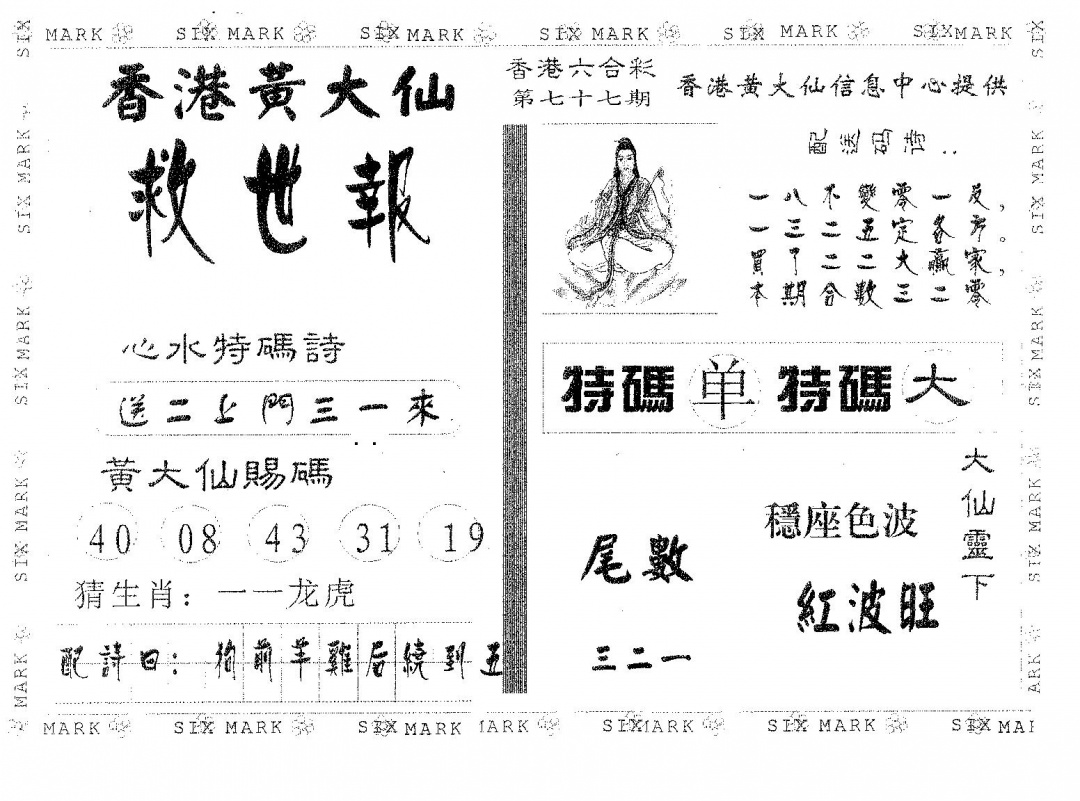 SIX MARK SIX MARK SIX MARK SIX MARK SIX MARK SIX MARK
香港黃大仙
救世報
心水特碼詩
送二上門三一來
黃大仙賜碼
40 08 43 31 19
猜生肖：一一龙虎
配詩曰：狗前羊雞后繞到五
香港六合彩
第七十七期
香港黄大仙信息中心提供
配送码诗：
一八不變零一反，
一三二五定各方。
買了二二大贏家，
本期合數三二零
特碼单特碼大
大仙靈下
穩座色波
紅波旺
尾數
三二一
MARK SIX MARK SIX MARK MARK SIX MARK SIX MARK SIX MAR
SIX MARK SIX MARK SIX MARK SIX MARK
SIX MARK SIX MARK SIX MARK ARK